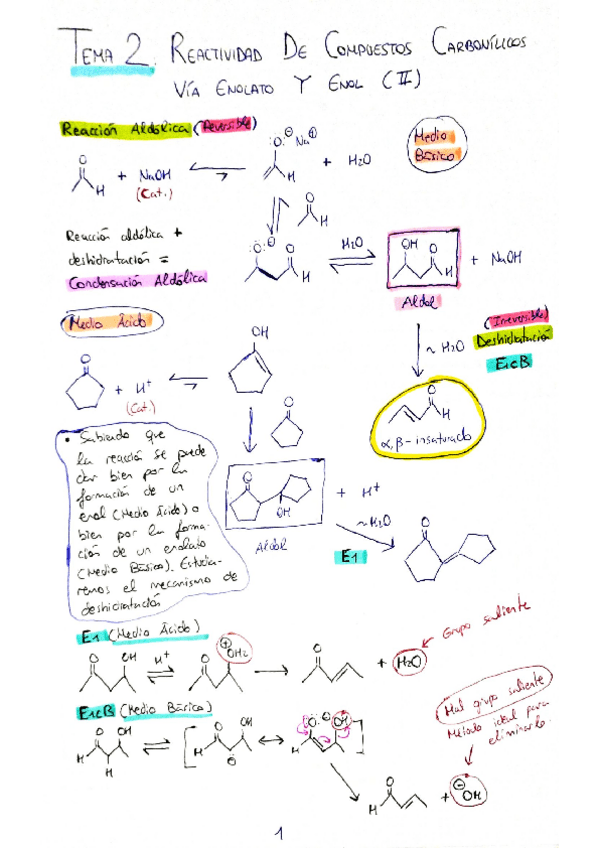 TEMA 2. REACTIVIDAD DE COMPUESTOS CARBONÍLICOS
VÍA ENOLATO Y ENOL (II)
Reacción Aldólica (Reversible)
Medio
Básico
O
H
+ NaOH
(Cat.)
O ⊖ Na⊕
H
+ H2O
O
H
Reacción aldólica +
deshidratación =
Condensación Aldólica
O ⊖ O
H
H2O
OH O
H
+ NaOH
Aldol
Medio Ácido
(Irreversible)
~ H2O
Deshidratación
E1cB
O
+ H+
(Cat.)
OH
O
H
α,β-insaturado
O
• Sabiendo que
la reacción se puede
dar bien por la
formación de un
enol (Medio Ácido) o
bien por la forma-
ción de un enolato
(Medio Básico). Estudia-
remos el mecanismo de
deshidratación
O
OH
+ H+
~H2O
Aldol
E1
O
E1 (Medio Ácido)
O OH
H+
O ⊕OH2
O
+ H2O
Grupo saliente
E1cB (Medio Básico)
O OH
H
H
O OH
H
⊖
O ⊖ OH
H
Mal grupo saliente
Método ideal para
eliminarlo.
O
H
+ ⊖OH
1